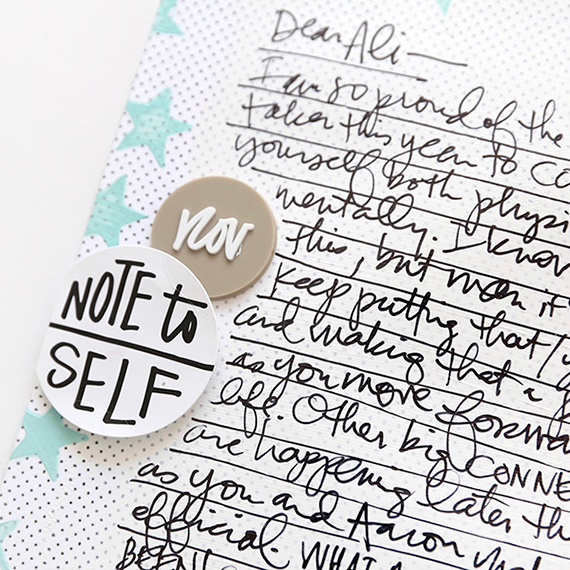 Dear Ali —
I am so proud of the
taken this year to
yourself both
mentally. I know
this, but man it
keep putting that
and making that a
as you move
life. Other big
are happening later
as you and Aaron
official. WHAT A
BEEN
nov
NOTE to
SELF